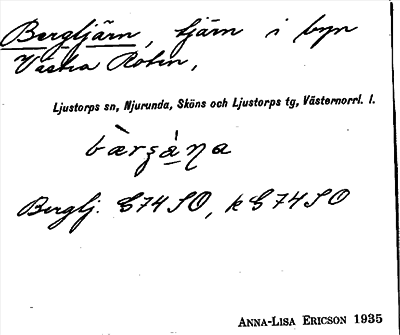 Bergtjärn, tjärn i byn
Västra Roten,
Ljustorps sn, Njurunda, Sköns och Ljustorps tg, Västernorrl. l.
Berglj. G74SO, k G74SO
ANNA-LISA ERICSON 1935